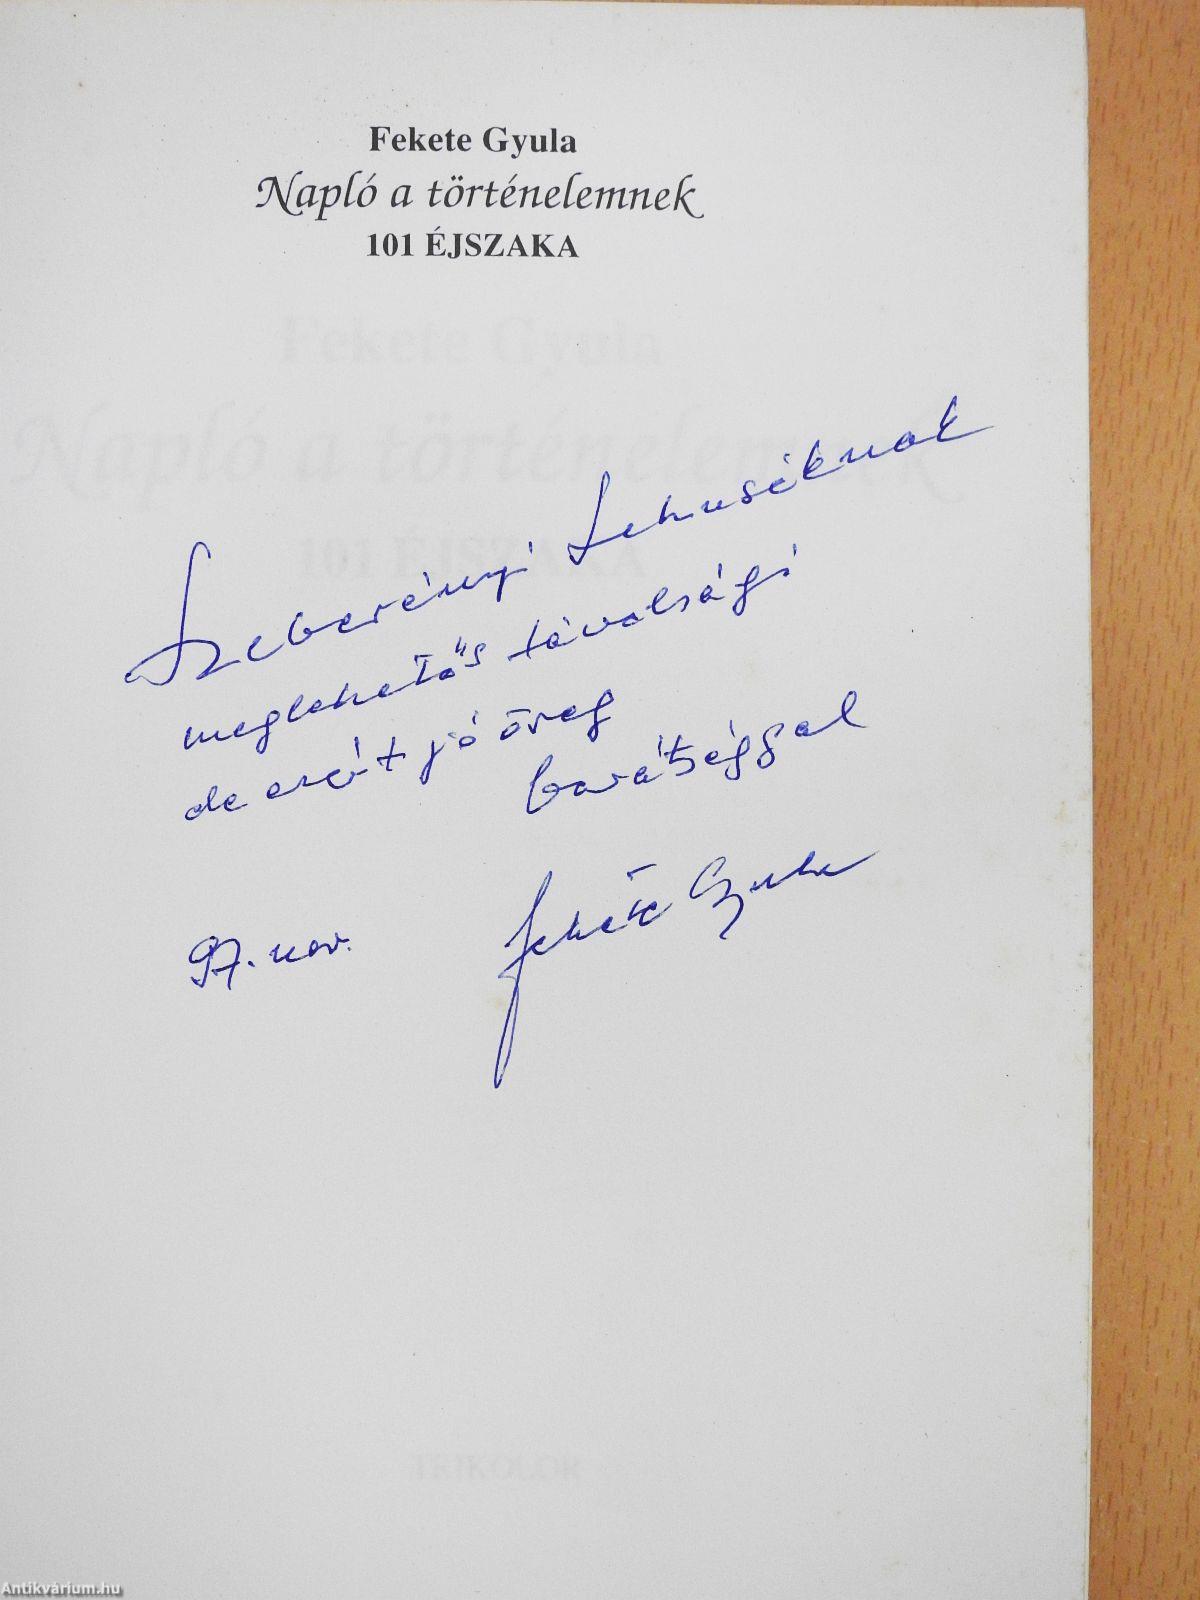 Fekete Gyula
Napló a történelemnek
101 ÉJSZAKA
Fekete Gyula
Napló a történelemnek
101 ÉJSZAKA
Szeberényi Lehuséknak
meglehetős távolsági
de ezért jó öreg
barátsággal
97. nov.
Fekete Gyula
TRIKOLOR
Antikvárium.hu